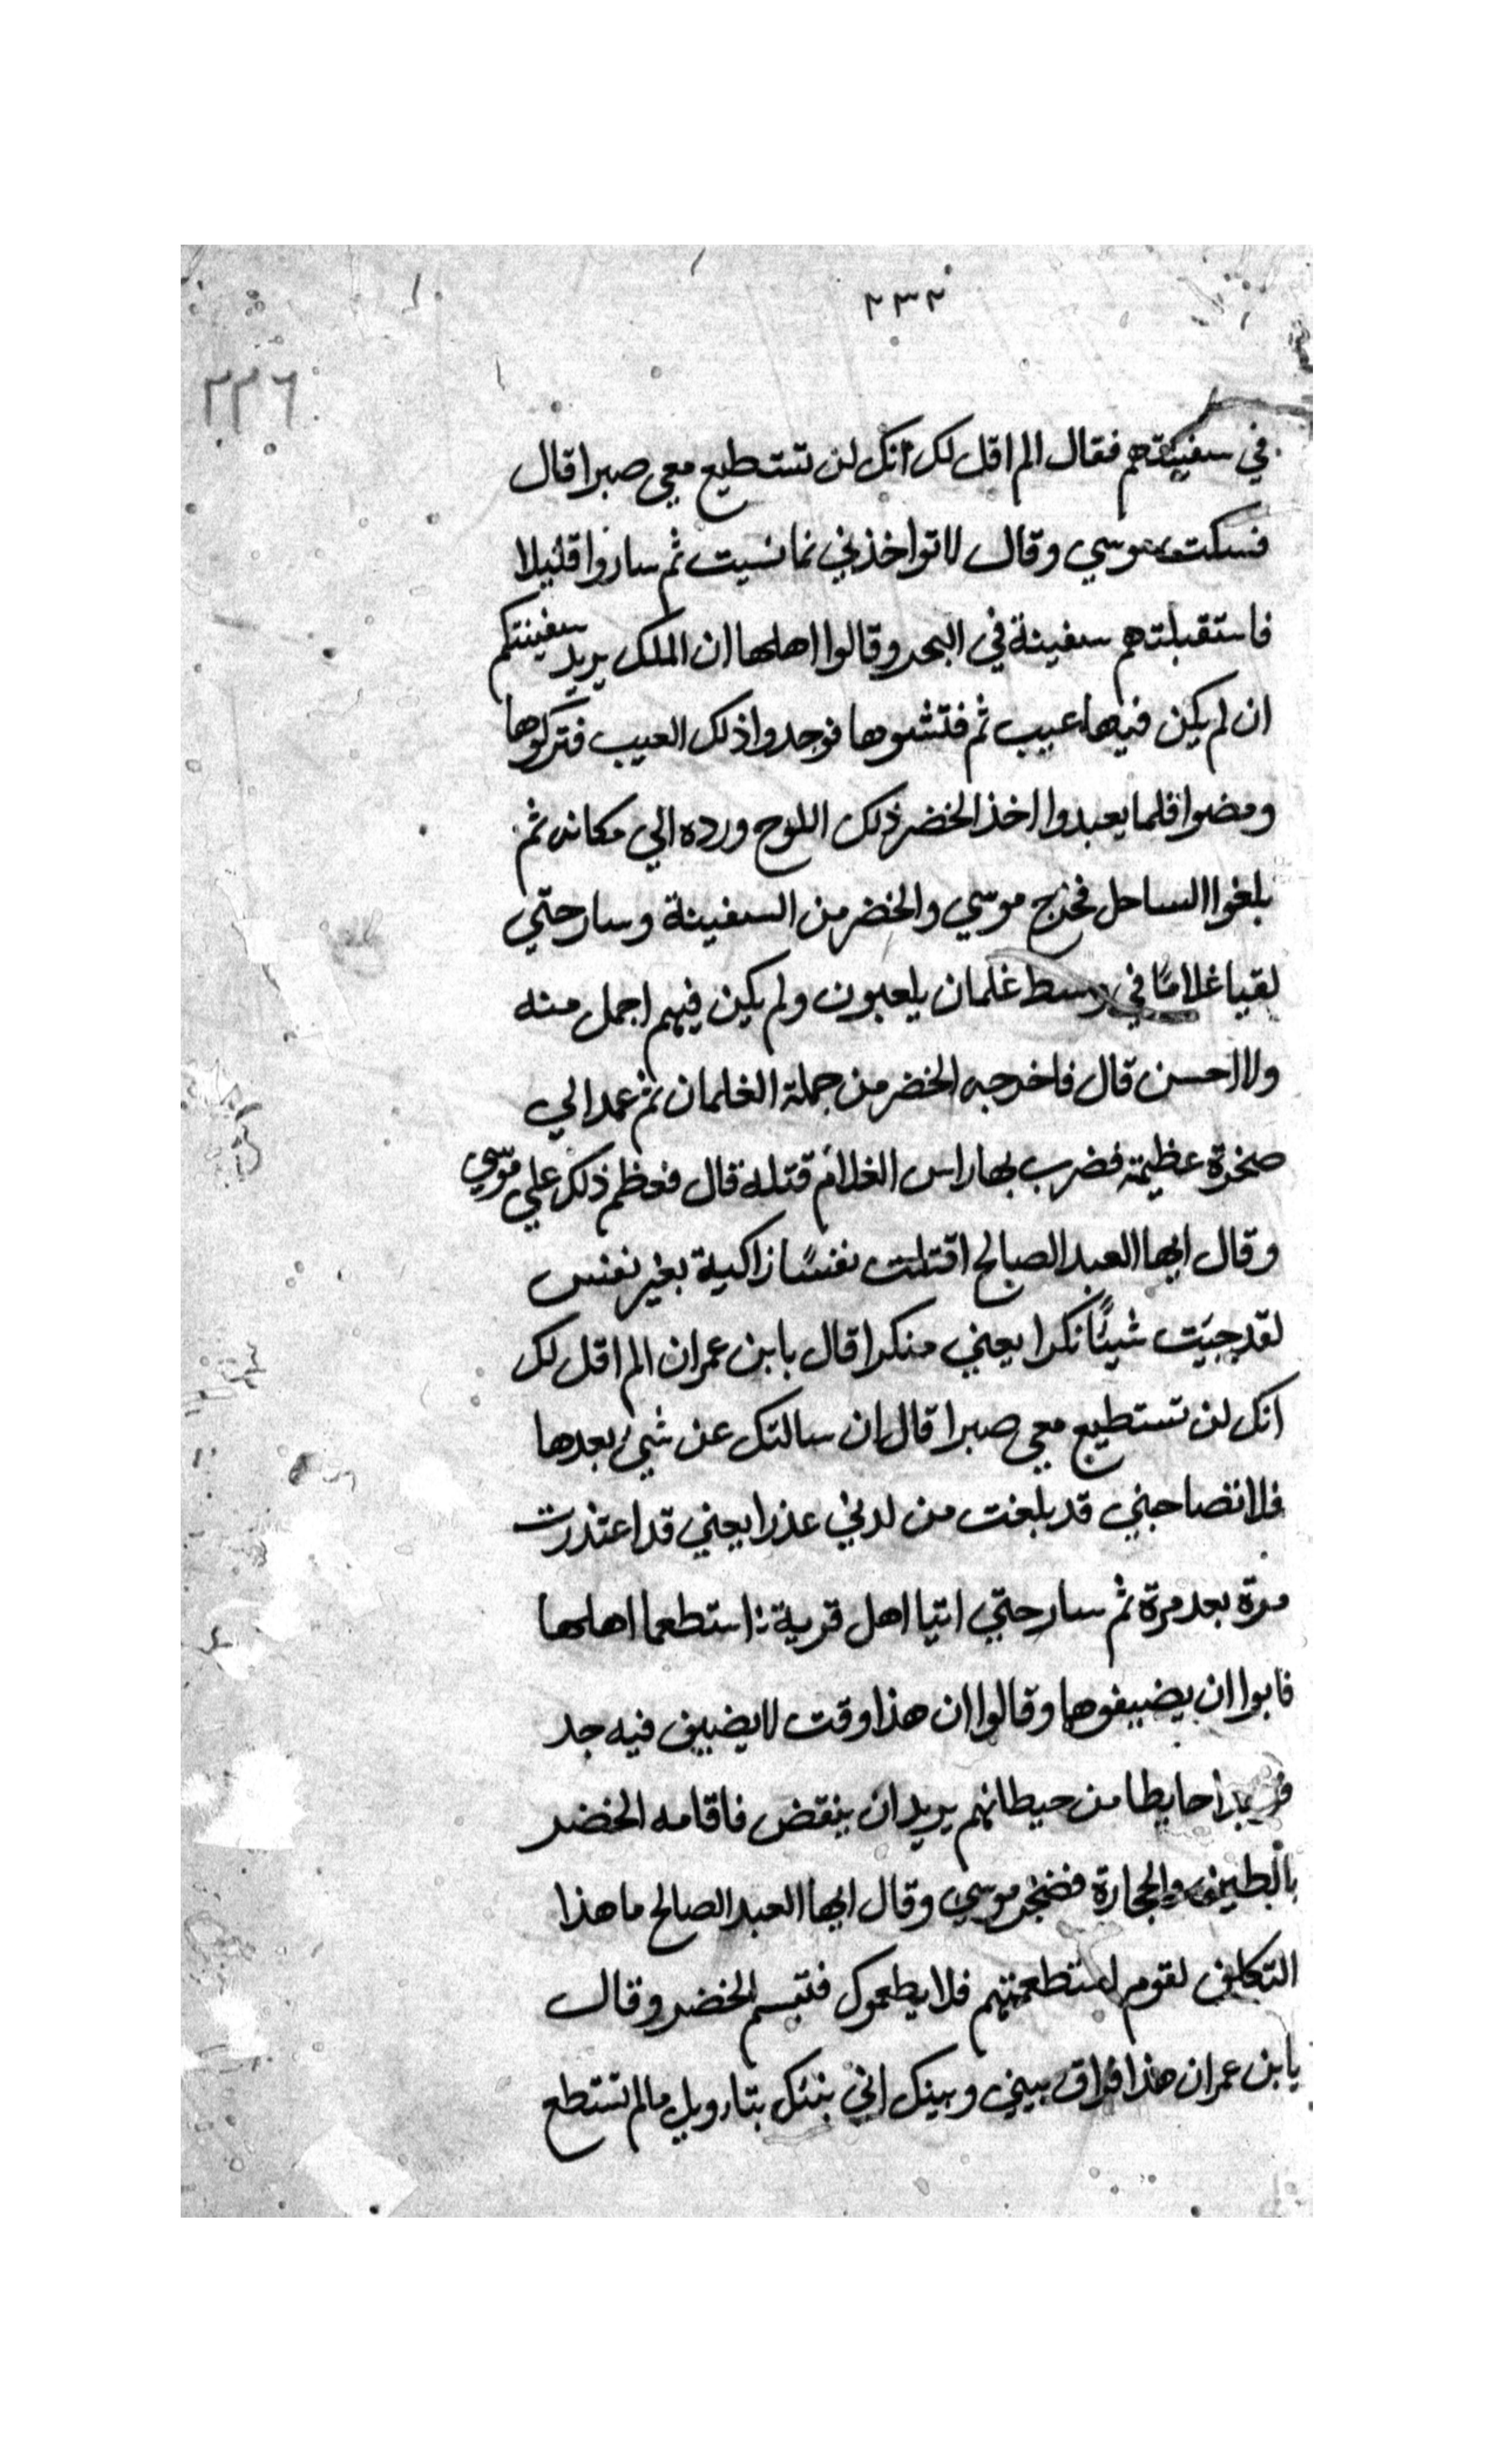 ٢٣٢
٢٢٦
في سفينتهم فقال الم اقل لك انك لن تستطيع معي صبرا قال
فسكت موسي وقال لا تواخذني بما نسيت ثم ساروا قليلا
فاستقبلتهم سفينة في البحر وقالوا اهلها ان الملك يريد سفينتكم
ان لم يكن فيها عيب ثم فتشوها فوجدوا ذلك العيب فتركوها
ومضوا فلما يعبدوا اخذ الخضر ذلك اللوح ورده الي مكانه ثم
بلغوا الساحل فخرج موسي والخضر من السفينة وسار حتي
لقيا غلامًا في وسط غلمان يلعبون ولم يكن فيهم اجمل منه
ولا احسن قال فاخرجه الخضر من جملة الغلمان ثم عمد الي
صخرة عظيمة فضرب بها راس الغلام قتله قال فعظم ذلك علي موسي
وقال ايها العبد الصالح اقتلت نفسًا زاكية بغير نفس
لقد جيت شيئًا نكرا يعني منكرا قال يابن عمران الم اقل لك
انك لن تستطيع معي صبرا قال ان سالتك عن شي بعدها
فلا تصاحبني قد بلغت من لدني عذرا يعني قد اعتذرت
مرة بعد مرة ثم سار حتي اتيا اهل قرية استطعما اهلها
فابوا ان يضيفوهما وقالوا ان هذا وقت لا يضيف فيه جد
حايطا من حيطانهم يريد ان ينقض فاقامه الخضر
بالطين والحجارة فضجر موسي وقال ايها العبد الصالح ما هذا
التكلف لقوم استطعمتهم فلا يطعموك فتبسم الخضر وقال
يابن عمران هذا فراق بيني وبينك اني بنئك بتاويل مالم تستطع